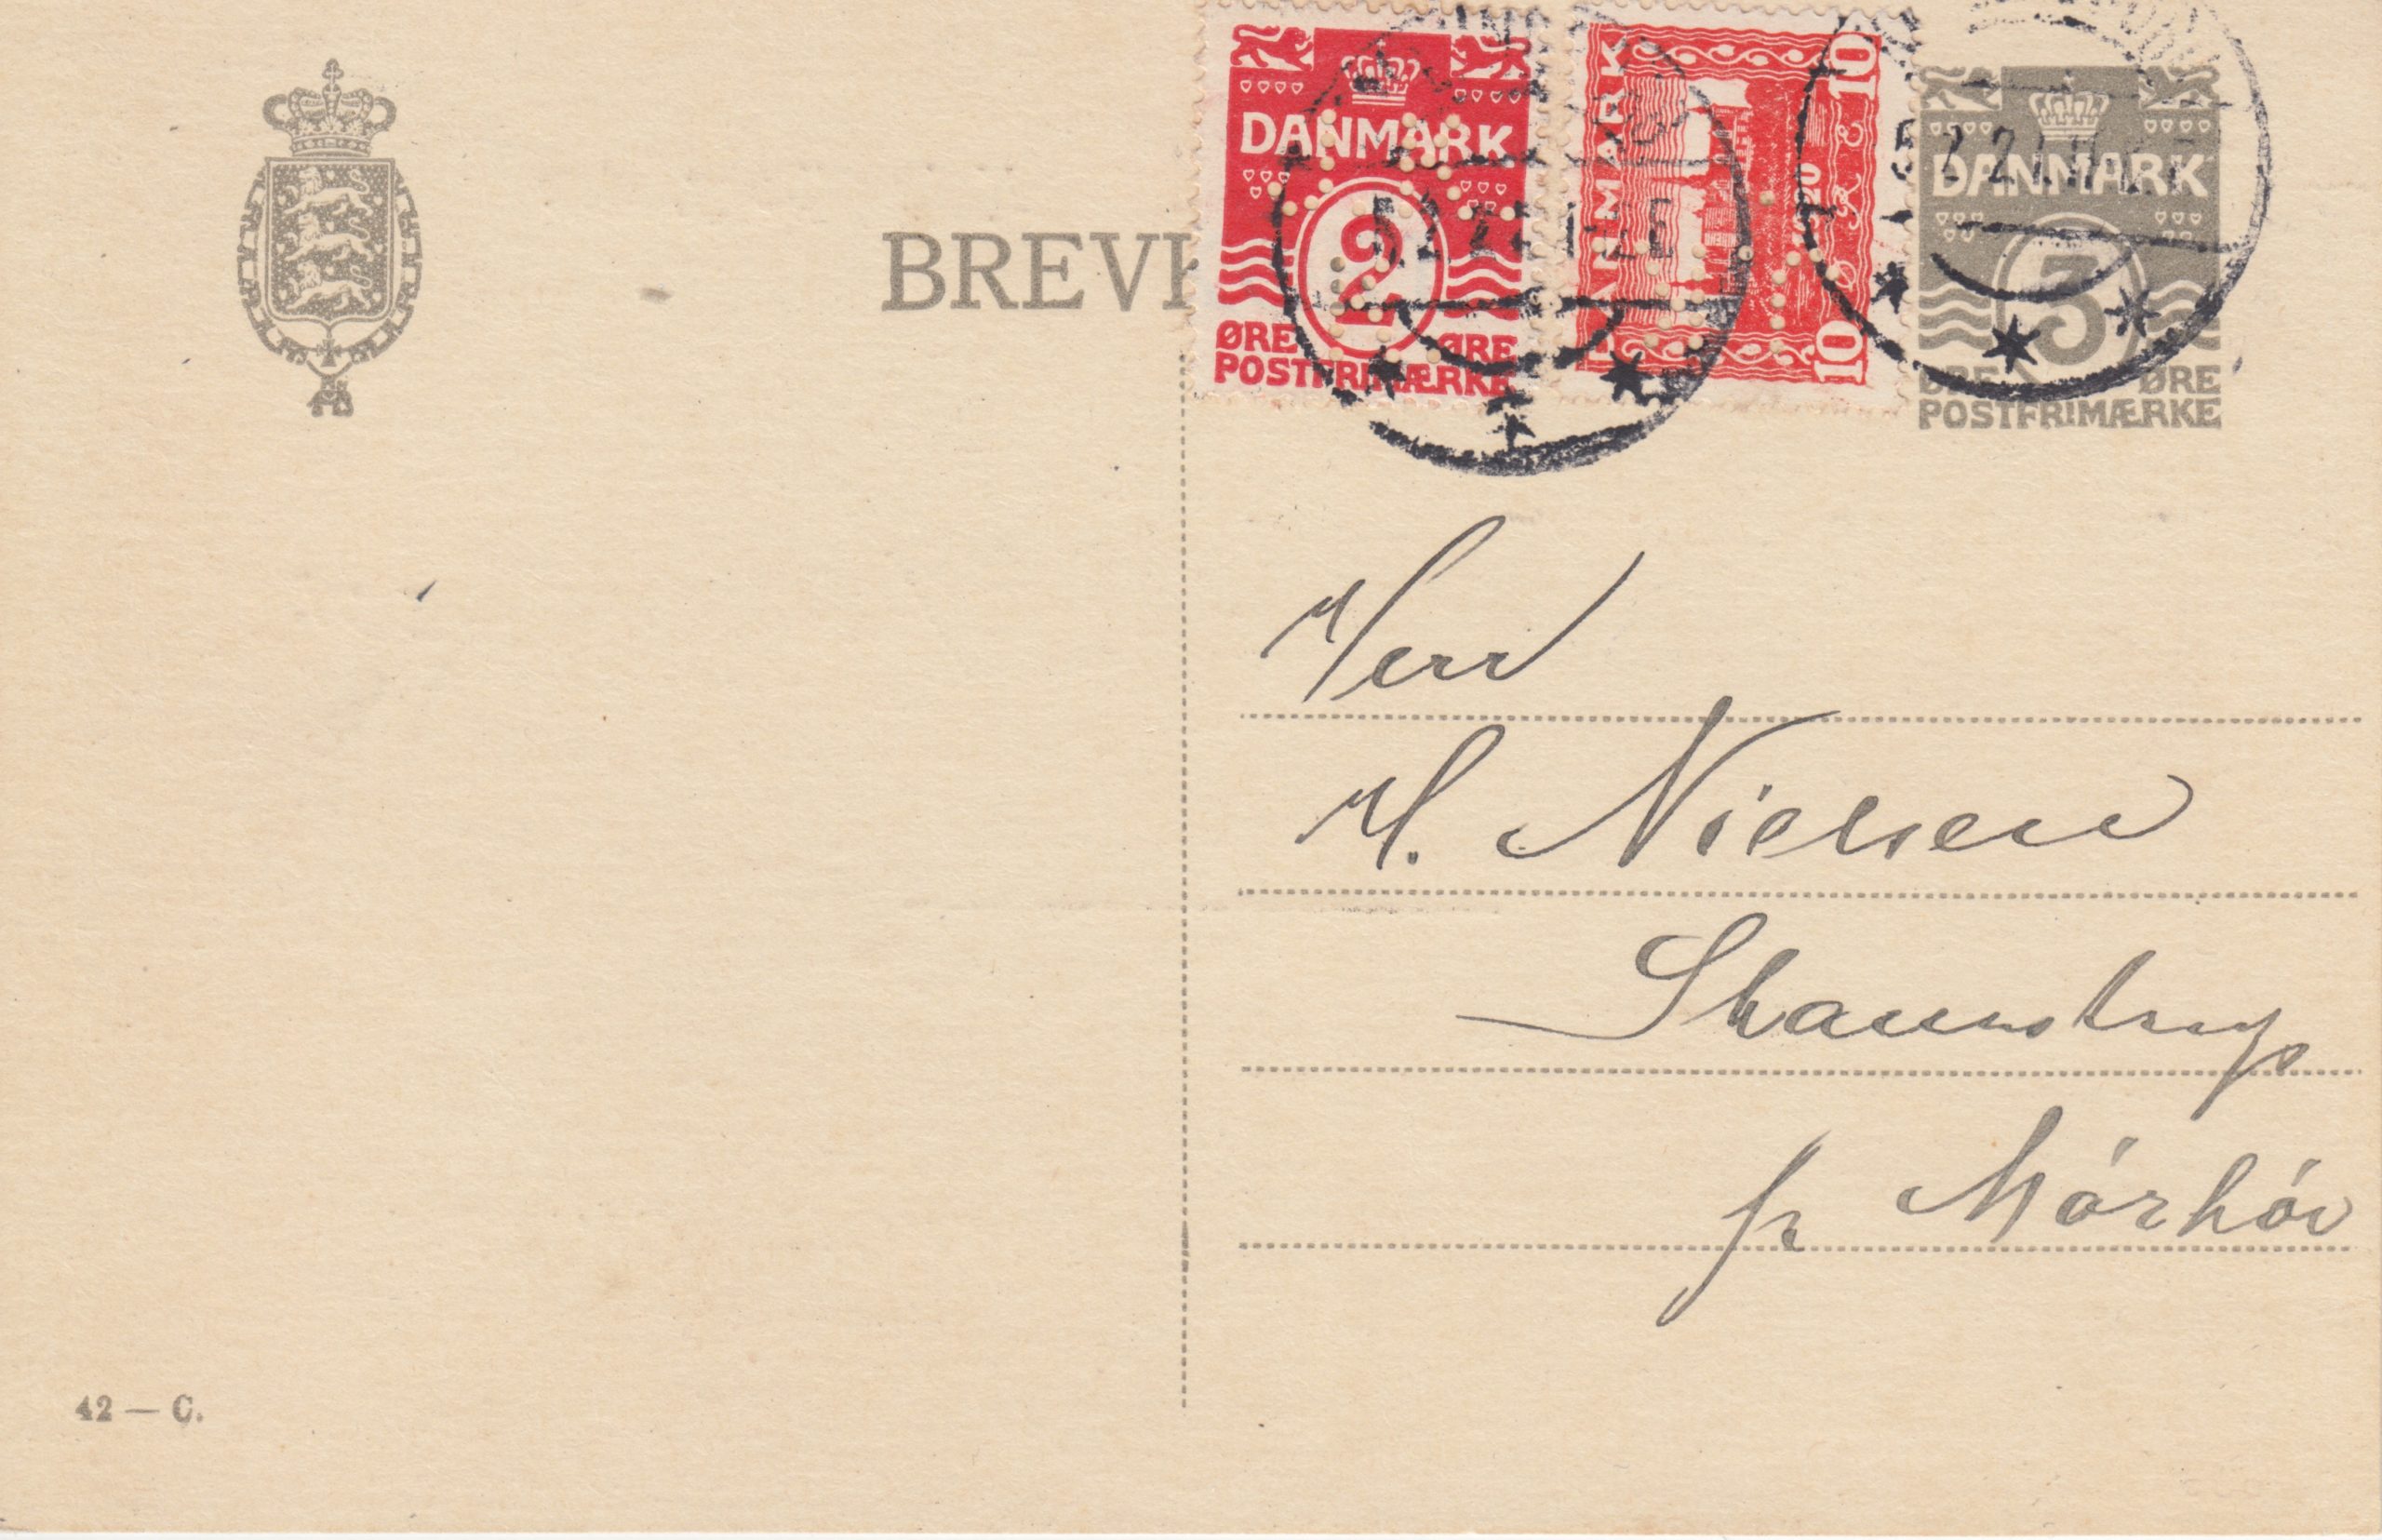 BREVK
DANMARK
2
ØRE ØRE
POSTFRIMÆRKE
DANMARK
10 10
20
DANMARK
3
ØRE ØRE
POSTFRIMÆRKE
Herr
H. Nielsen
pr Mörköv
42 — C.